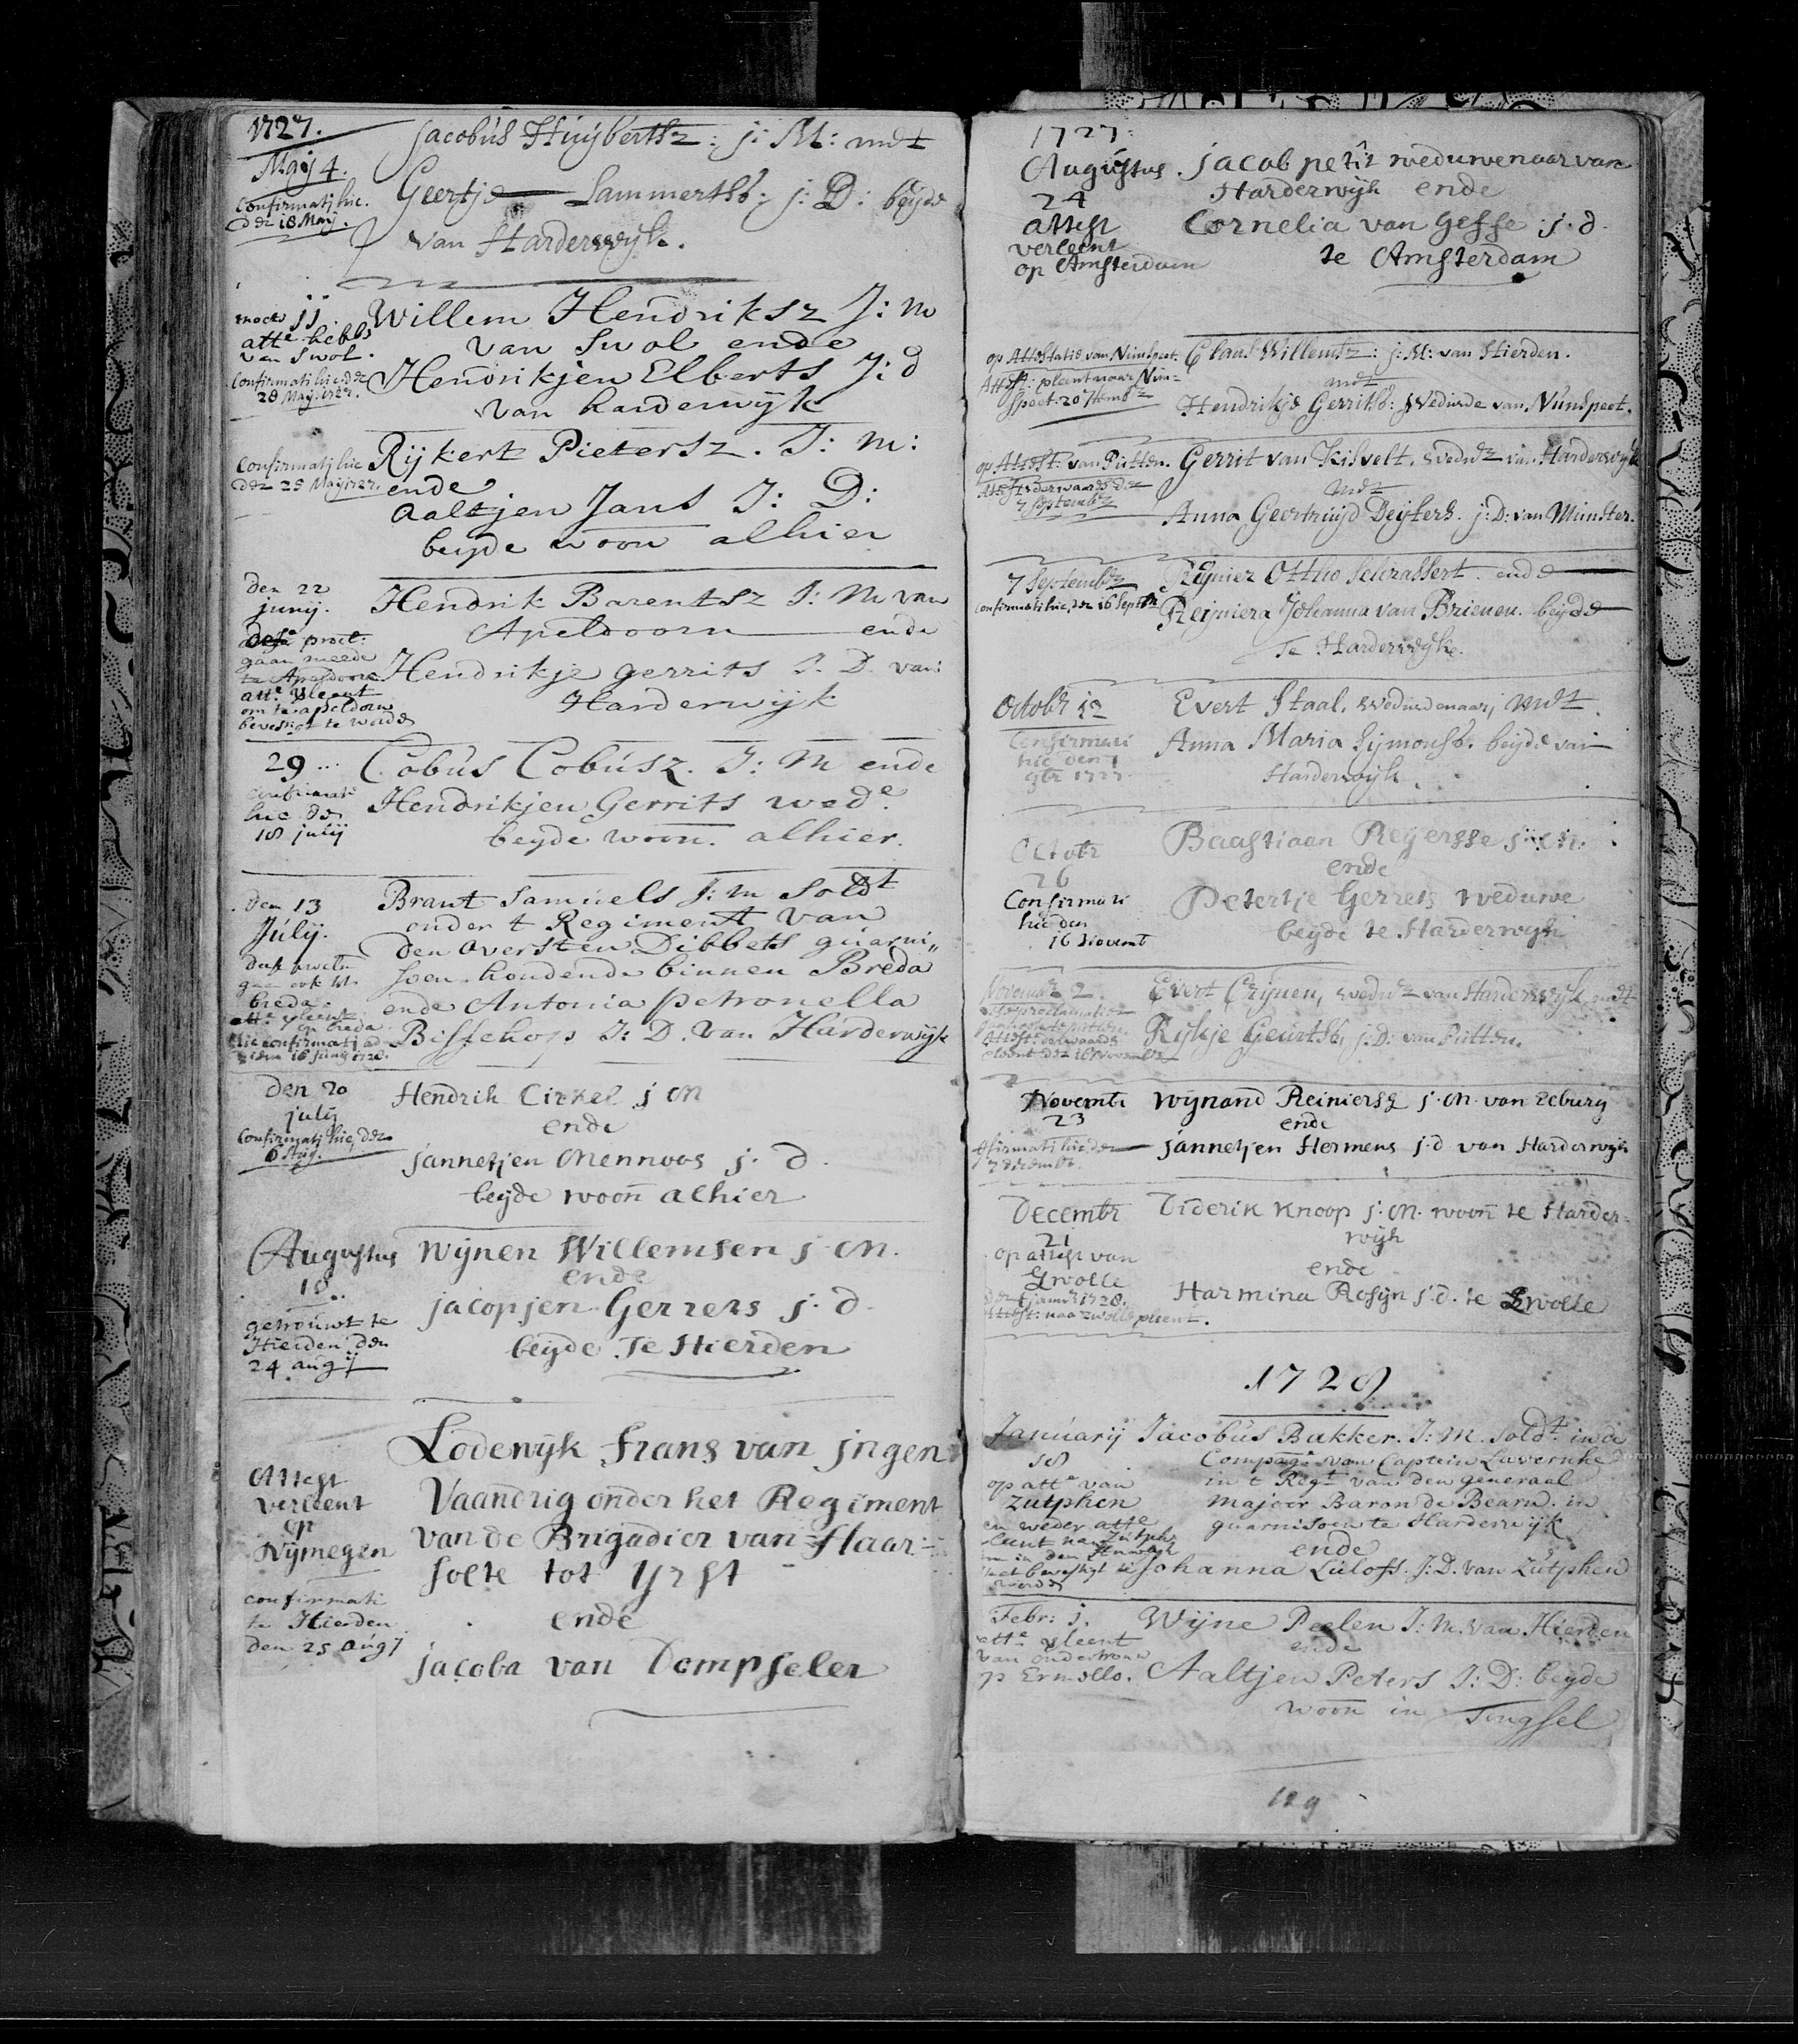 1727.
May 4.
Confirmati hic.
d 18 May.
Jacobus Huijbertsz: j: M: met
Geertje Lammerts: j: D: beyde
van Harderwyk.
11
atte hebbs
van Swol.
Confirmati hic d
28 May 1727.
Willem Hendriksz J: m
van Swol ende
Hendrikjen Elberts J: d
van harderwijk
Confirmati hic
den 25 May 1727.
Rijkert Pietersz. J: m:
ende
Aaltjen Jans J: D:
beyde woon alhier
Den 22
junij.
proct:
gaan meede
te Apeldoorn
atte vleent
om te apeldorn
bevestigt te werde
Hendrik Barentsz J: M van
Apeldoorn ende
Hendrikje gerrits J. D. van
Harderwijk
29 ...
confirmati
hic de
18 julij
Cobus Cobusz. J: M ende
Hendrikjen Gerrits wede.
beyde woon. alhier.
Den 13
Julij.
gaan ook tot
breda.
atte vleent
op breda
hic confirmati
16 1728.
Brant Samuels J: m Soldt
onder t Regiment van
den oversten Dibbets guarni„
soen houdende binnen Breda
ende Antonia petronella
Bisschop J: D. van Harderwijk
Den 20
july
Confirmati hic, den
6 Aug.
Hendrik Cirkel j M
ende
jannetjen Mennoos j. d.
beyde woon alhier
Augustus
18..
getrouwt te
Hierden den
24 aug
Wijnen Willemsen j M.
ende
jacopjen Gerrets j. d.
beyde Te Hierden
Attest
verleent
op
Nymegen
confirmati
te Hierden
den 25 aug
Lodewyk frans van jngen
Vaandrig onder het Regiment
van de Brigadier van Haar=
solte tot Yrst
ende
jacoba van Dompseler
1727:
Augustus
24
attest
verleent
op Amsterdam
jacob petit weduwenaar van
Harderwyk ende
Cornelia van Gesse j. d.
te Amsterdam
op Attestatie van Nunspeet.
Attest: pleent naar Nun=
speet. 20
Claas Willemsz: j: M: van Hierden.
met
Hendrikje Gerrits: Weduwe van Nunspeet.
op Attest: van Putten.
7 Septembr
Gerrit van Kisvelt, wedr van Harderwyk
met
Anna Geertruijd Deijters. j: D: van Munster.
7 Septembr
Confirmati hic, den 16 Septbr
Reijnier Ottho Schrassert. ende
Reijniera Johanna van Brienen. beyde
Te Harderwyk.
Octobr 12
Confirmati
hic den 1
9br 1727.
Evert Staal, weduwenaar, met
Anna Maria Sijmons. beyde van
Harderwyk.
Octobr
26
Confirmati
hic den
16 Novemb
Baastiaan Reyersse j: M.
ende
Petertje Gerrets weduwe
beyde te Harderwyk
Novembr 2.
Evert Crijnen, wedr van Harderwyk, met
Rijkje Geurts, j: D: van Putten.
Novembr
23
Confirmati hic, den
7 decembr.
Wynand Reiniersz j. M. van Ecburg
ende
jannetjen Hermens j. d van Harderwyk
Decembr
21
op attest van
Zwolle
den 4 jan 1728.
Attest: naar Zwolle pleent.
Diderik Knoop j. M. woon te Harder=
wyk
ende
Harmina Rosijn j. d. te Zwolle
1728
Januarij
18
op atte van
Zutphen
en weder atte
Jacobus Bakker. J: M. Soldt. in de
Compag: van Captein Lavernhe
in t Regt van den generaal
majoor Baron de Bearn. in
guarnisoen te Harderwijk
ende
Johanna Lulofs. J: D. van Zutphen
Febr: 1.
atte vleent
van ondertrouw
op Ermello.
Wijne Peelen J: M. van Hierden
ende
Aaltjen Peters J: D: beyde
woon in Tongsel
129